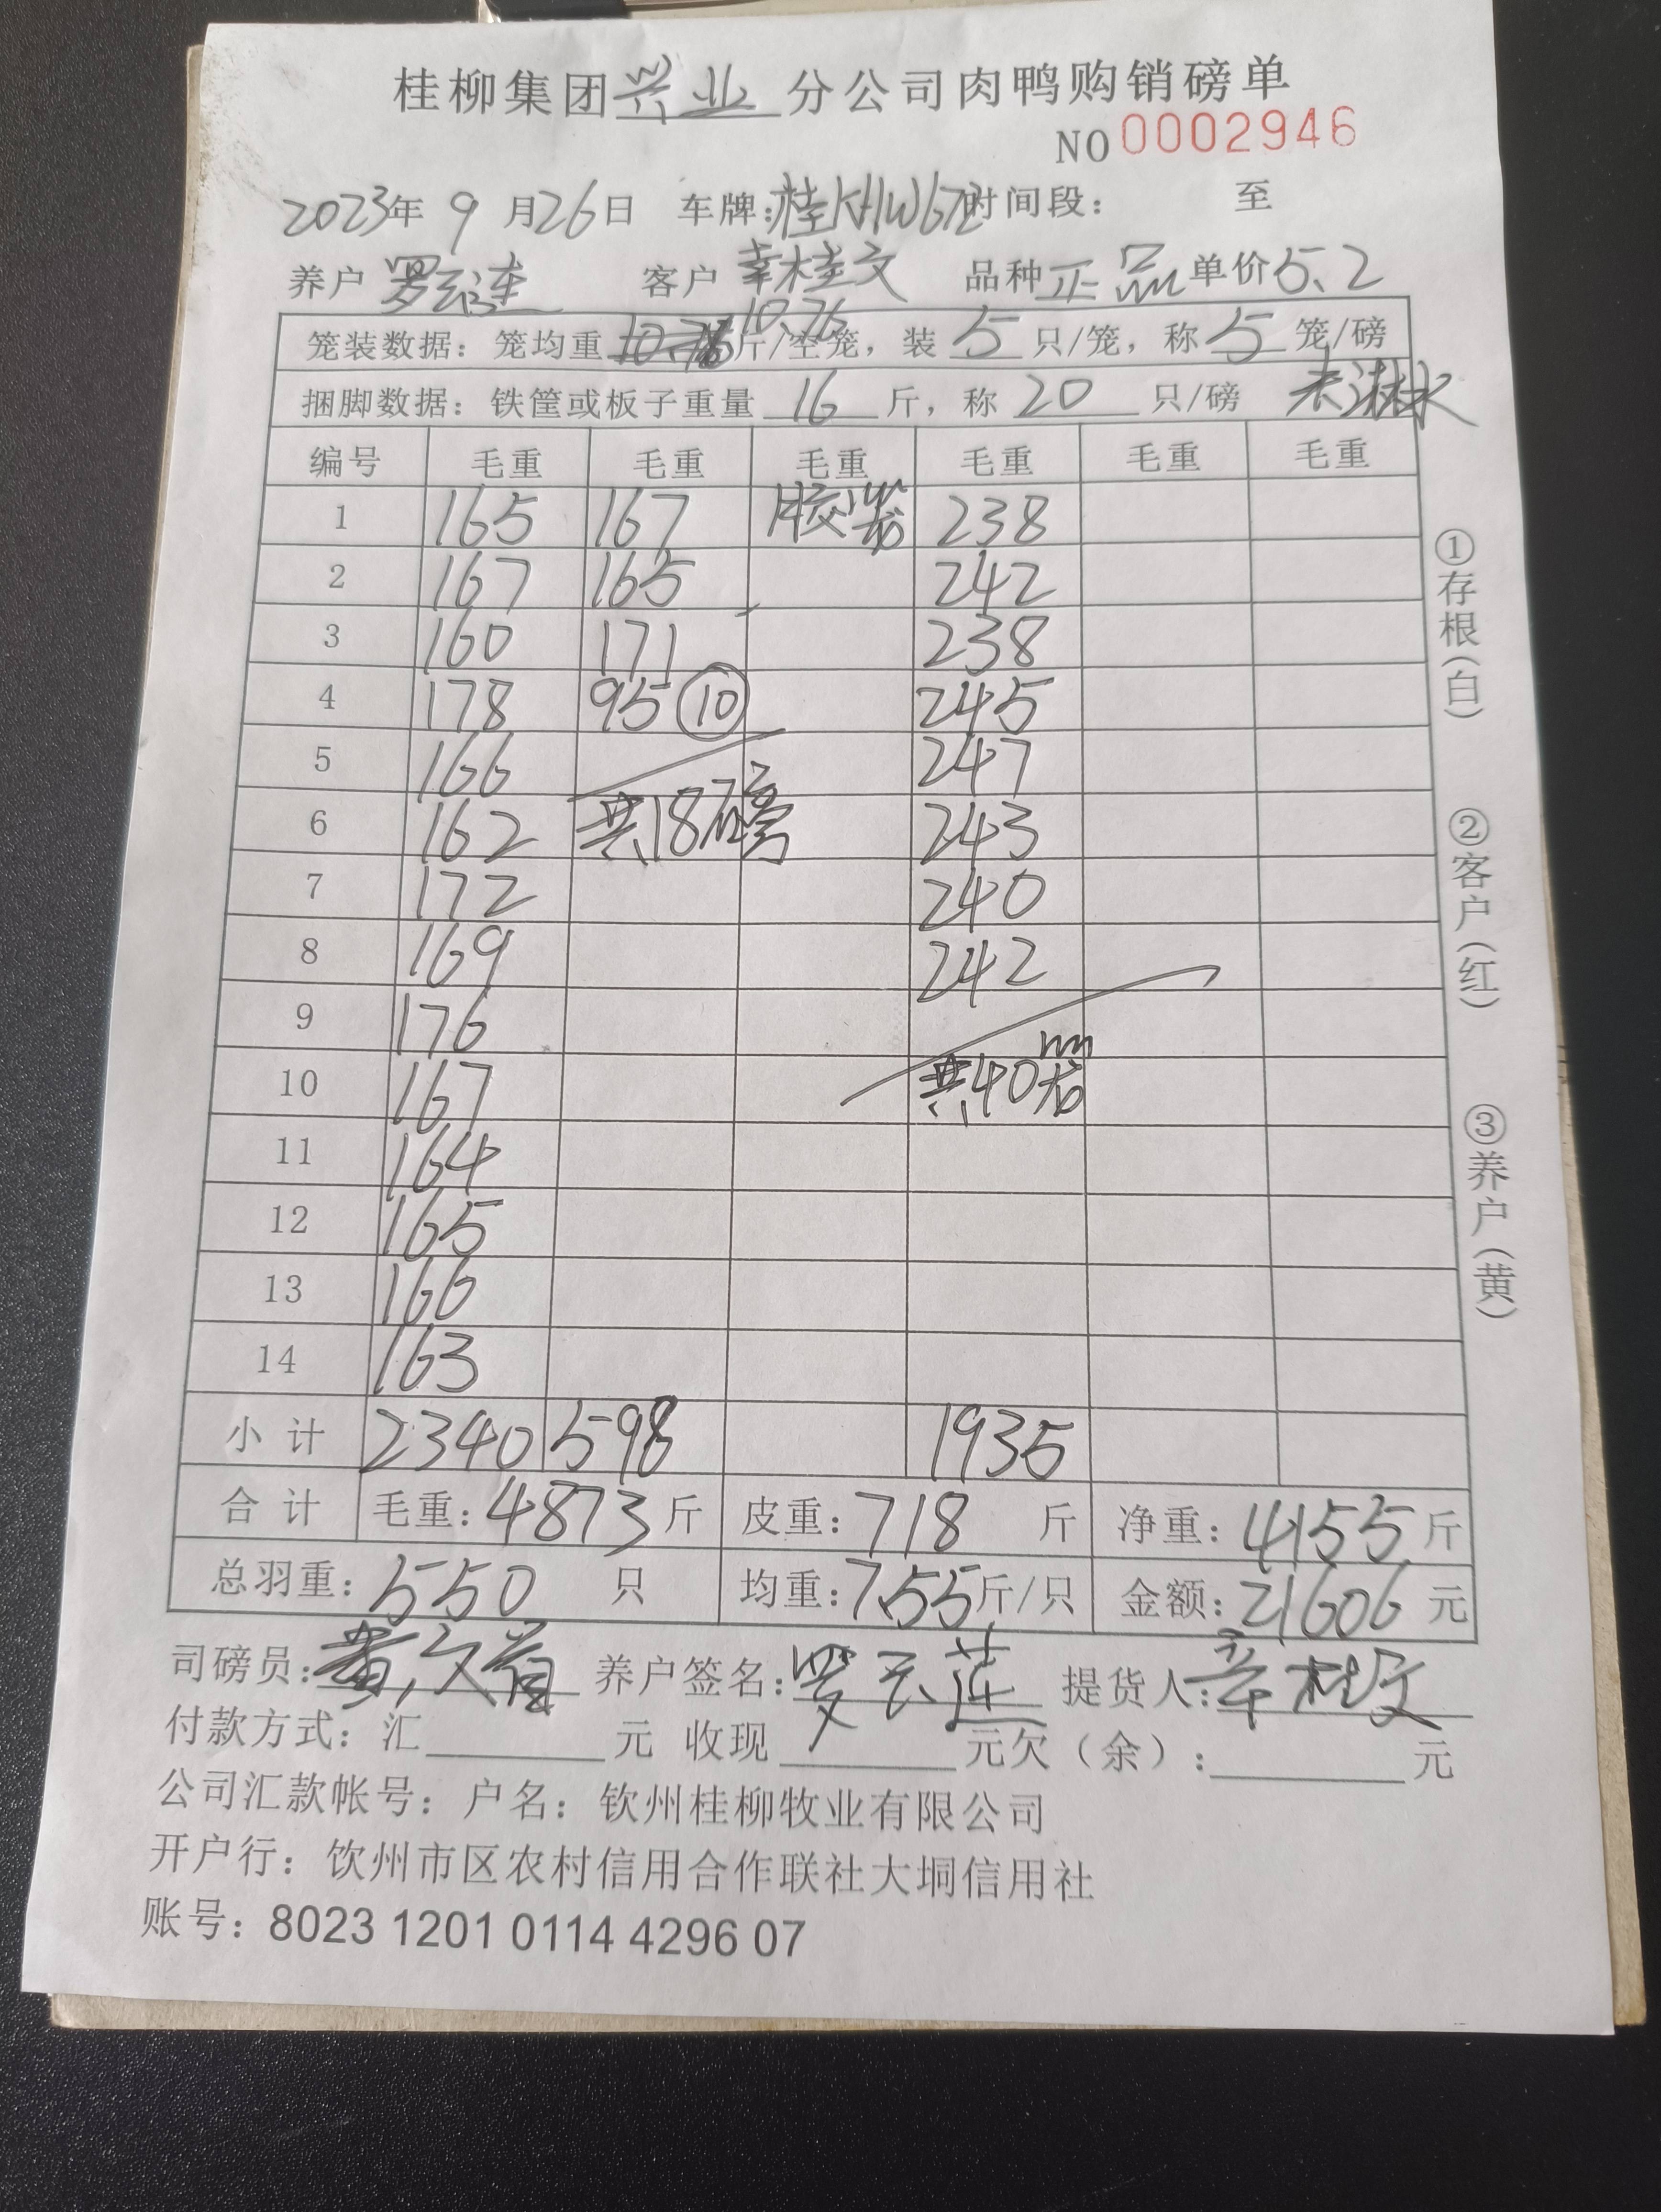 桂柳集团兴业分公司肉鸭购销磅单
NO 0002946
2023年 9 月26日 车牌:桂KHW672时间段: 至
养户 罗云莲 客户 辛桂文 品种 正品 单价5.2
笼装数据: 笼均重 10.76斤/空笼, 装 5 只/笼, 称 5 笼/磅
捆脚数据: 铁筐或板子重量 16 斤, 称 20 只/磅 未淋水
编号 毛重 毛重 毛重 毛重 毛重 毛重
1 165 167 胶笼 238
2 167 165 242
3 160 171 238
4 178 95 ⑩ 245
5 166 247
6 162 共18磅 243
7 172 240
8 169 242
9 176
10 167 共40笼
11 164
12 165
13 166
14 163
小计 2340 598 1935
合计 毛重: 4873 斤 皮重: 718 斤 净重: 4155 斤
总羽重: 550 只 均重: 7.55 斤/只 金额: 21606 元
司磅员: 黄文 养户签名: 罗云莲 提货人: 辛桂文
付款方式: 汇 元 收现 元欠(余): 元
公司汇款帐号: 户名: 钦州桂柳牧业有限公司
开户行: 饮州市区农村信用合作联社大垌信用社
账号: 8023 1201 0114 4296 07
①存根(白) ②客户(红) ③养户(黄)